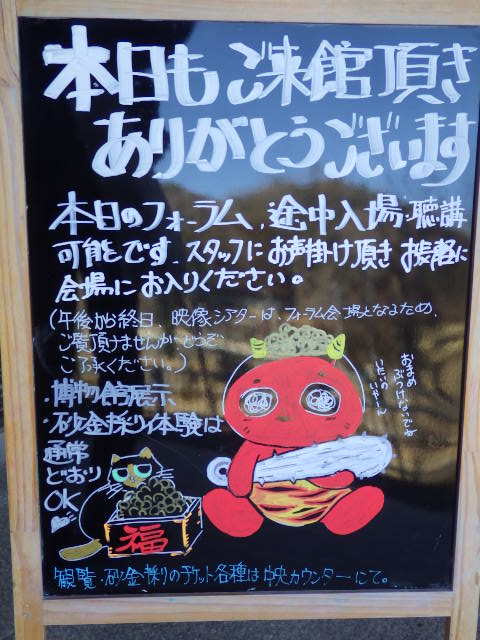 本日もご来館頂き
ありがとうございます
本日のフォーラム、途中入場・聴講
可能です。スタッフにお声掛け頂き お気軽に
会場にお入りください。
(午後から終日、映像シアターは、フォーラム会場となるため、
ご覧頂けませんがどうぞ
ご了承ください。)
・博物館展示
・砂金採り体験は
通常
どおり
OK
おまめ
ぶつけないでね
いたいの
いやーん
福
観覧・砂金採りのチケット各種は中央カウンターにて。